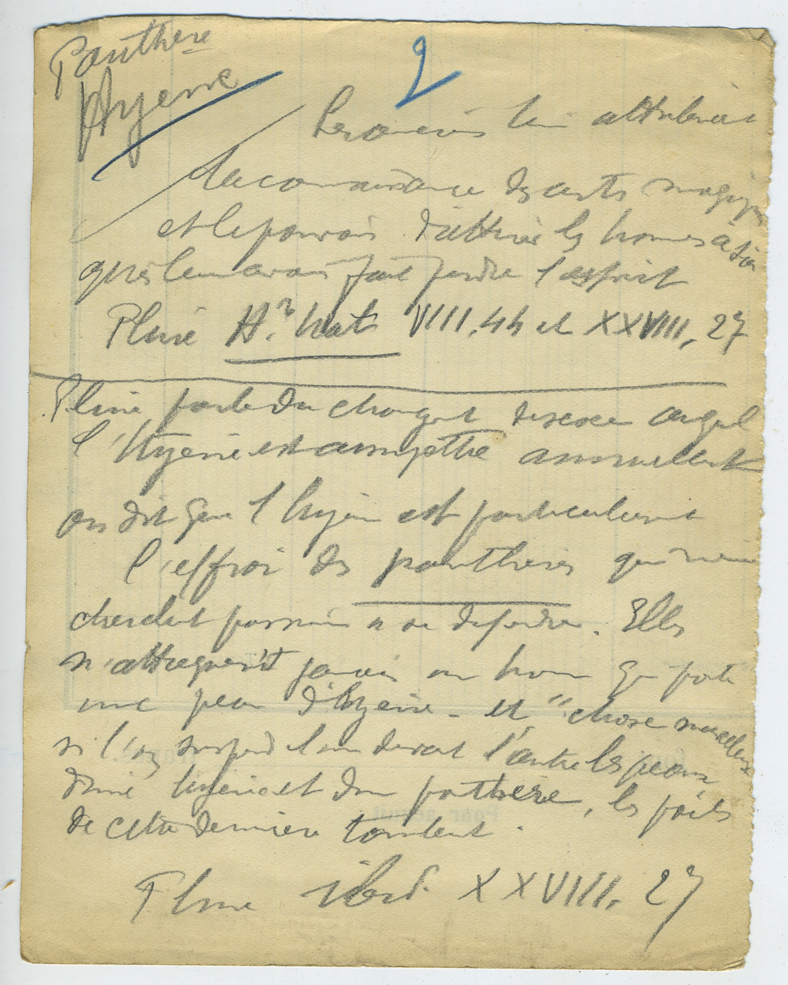 Panthère
Hyène
2
Les anciens lui attribuaient
la connaissance des arts magiques
et le pouvoir d'attirer les hommes à soi
après leur avoir fait perdre l'esprit
Pline H. Nat VIII, 44 et XXVIII, 27
Pline parle du changement de sexe auquel
l'hyène est annuellement
on dit que l'hyène est particulièrement
l'effroi des panthères qui ne
cherchent pas même à se défendre. Elles
n'attaquent jamais un homme qui porte
une peau d'hyène - et "chose merveilleuse
si l'on suspend l'une devant l'autre les peaux
d'une hyène et d'une panthère, les poils
de cette dernière tombent.
Pline ibid. XXVIII, 27